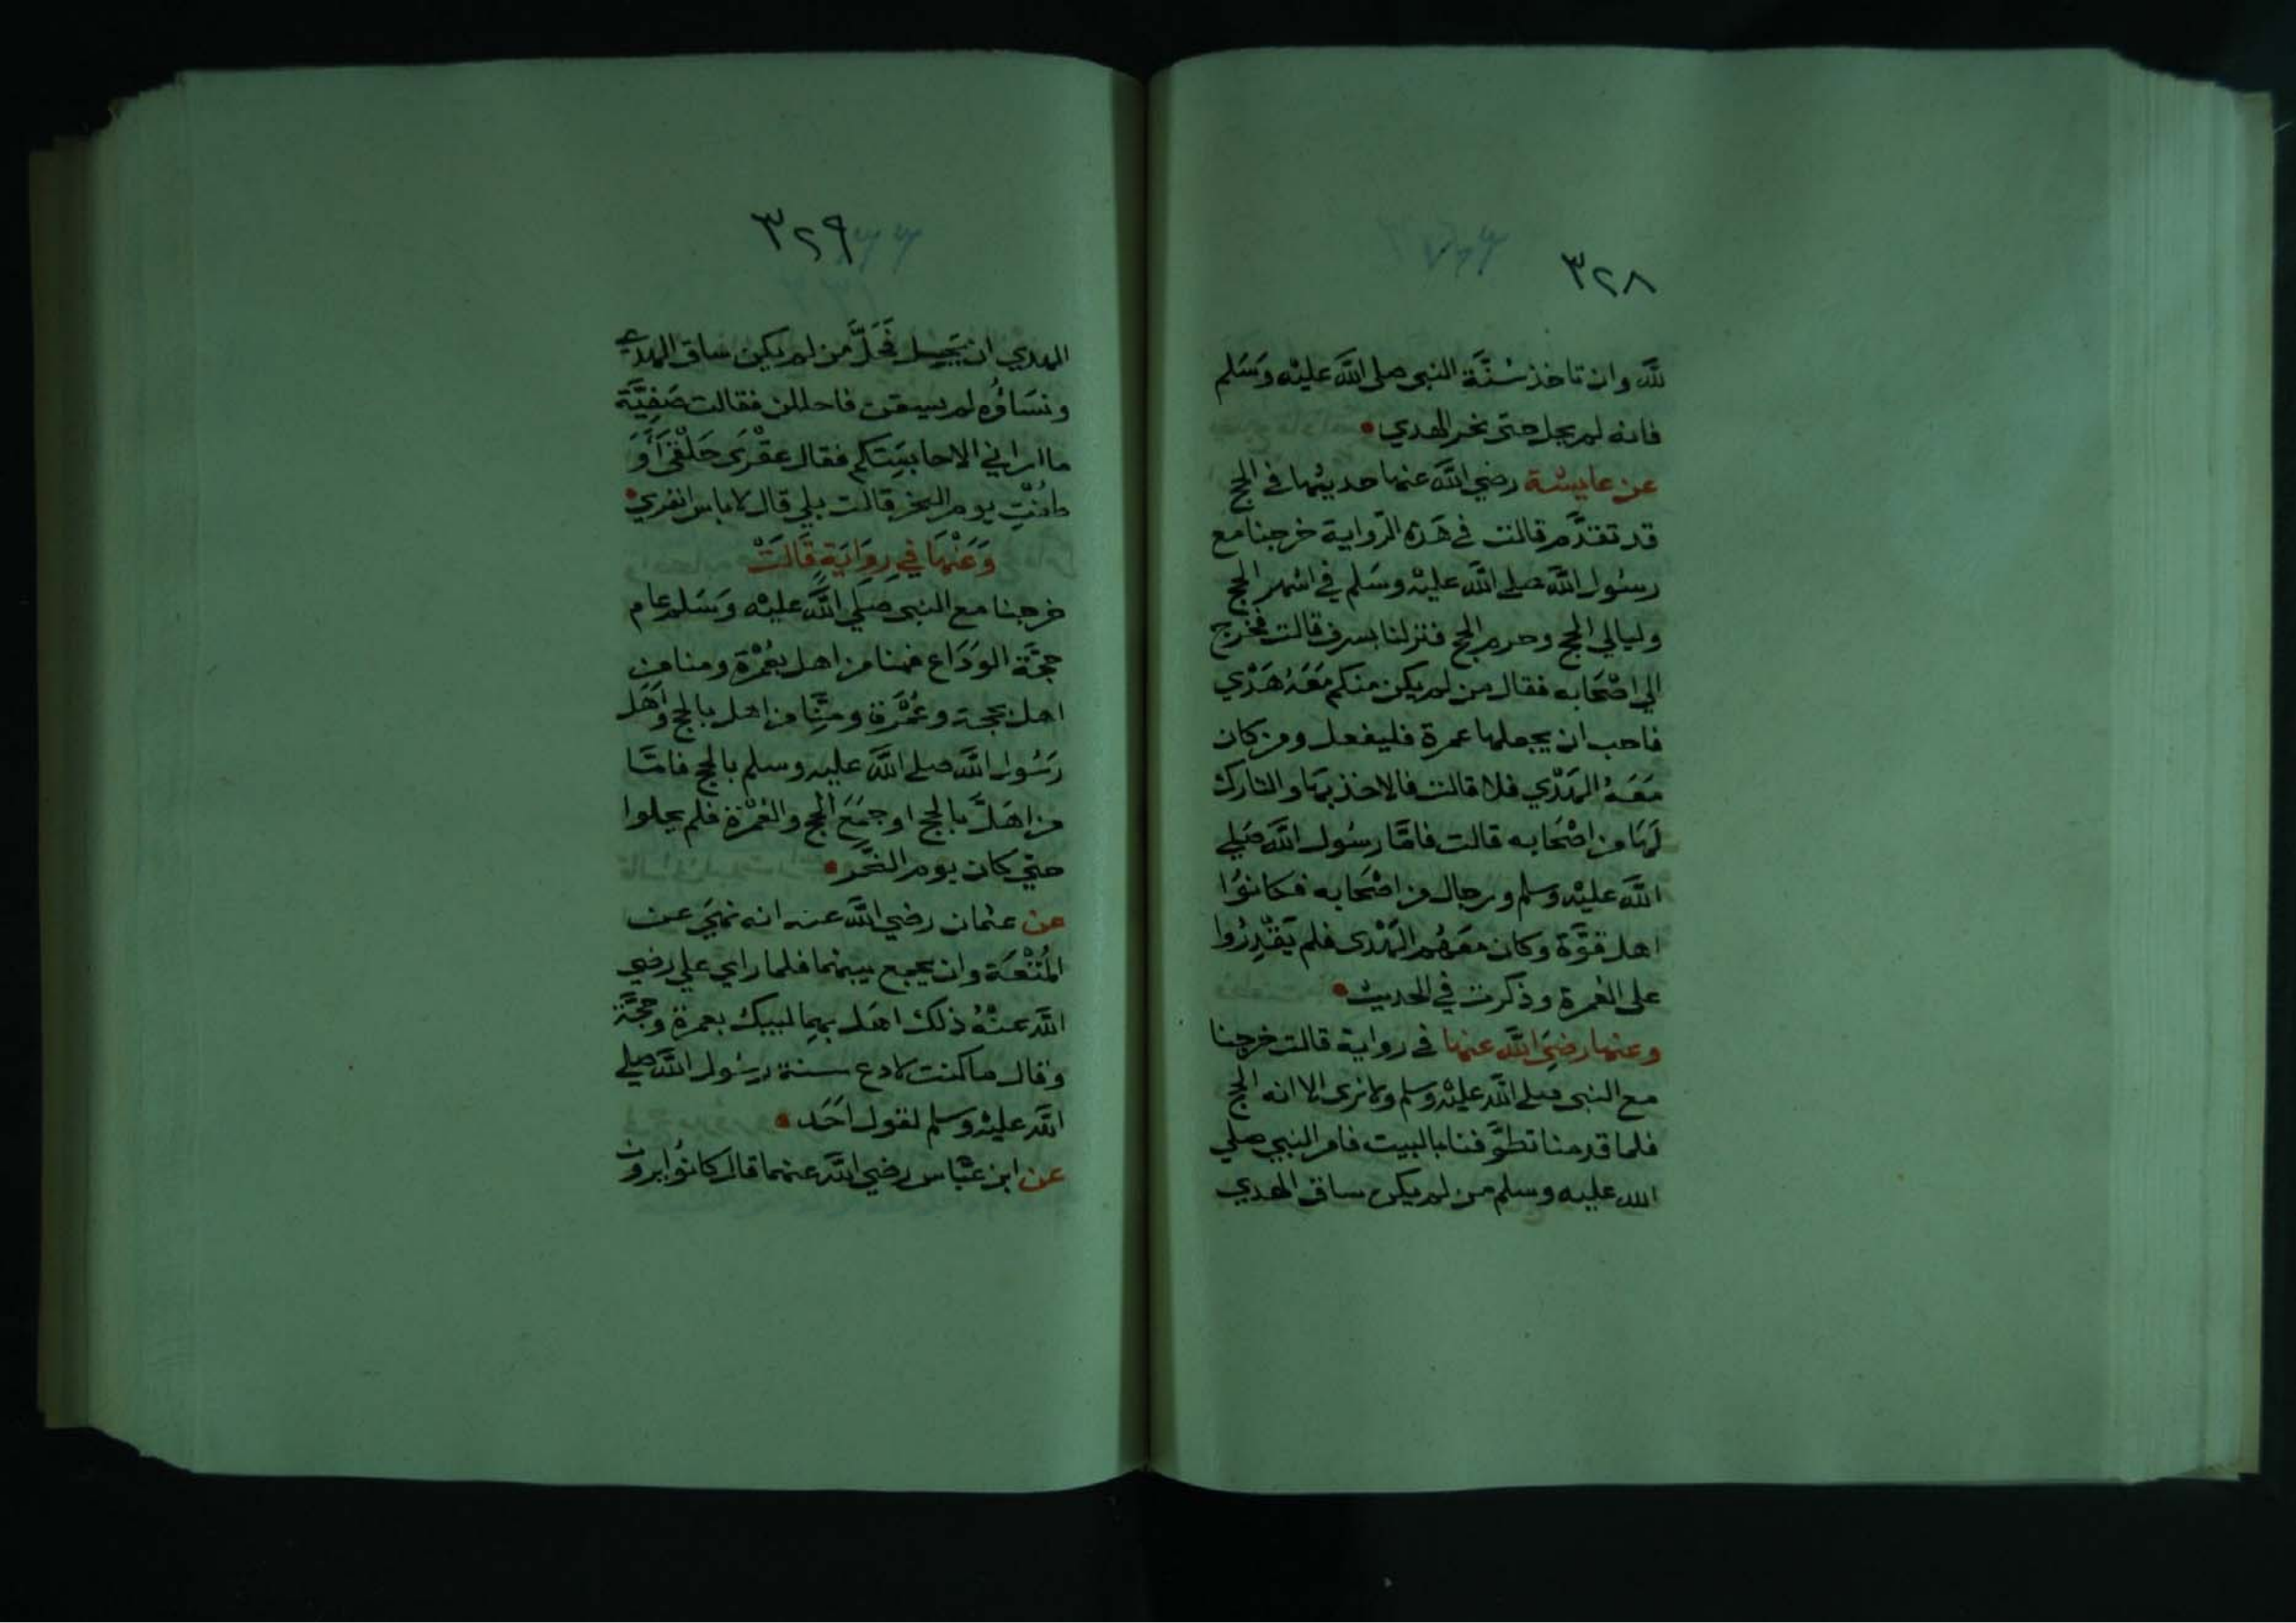 ٣٢٨
لله وان تاخذ سُنَّة النبي صلى الله عليه وَسَلم
فانه لم يحل حتى نحر الهدي
عن عايشة رضي الله عنها حديثها في الحج
قد تقدَّم قالت في هَذه الرّواية خرجنا مع
رسول الله صلى الله عليه وسَلم في اشهر الحج
وليالي الحج وحرم الحج فنزلنا بسرف قالت فخرج
الي اصْحَابه فقال من لم يكن منكم مَعَهُ هَدْي
فاحب ان يجعلها عمرة فليفعل ومن كان
مَعَهُ الهَدْي فلا قالت فالاخذ بهَا والتارك
لَهَا من اصْحَابه قالت فامَّا رسُول الله صَلي
الله عليْه وسلم ورجال من اصْحَابه فكانوُا
اهل قوَّة وكان معَهُم الهَدْى فلم يَقْدِرُوا
على العُمرة وذكرت في الحديث
وعنها رضِيَ الله عنها في رواية قالت خرجنا
مع النبي صلى الله عليْه وسلم ولا نرى الا انه الحج
فلما قدمنا تطوَّفنا بالبيت فامر النبي صلي
الله عليه وسلم من لم يكن ساق الهدي
٣٢٩
الهدي ان يَحِل فَحَلَّ من لم يكن ساق الهدي
ونسَاؤُه لم يسقن فاحللن فقالت صَفِيَّة
ما اراني الا حابسَتكم فقال عقْرَى حَلْقَى أَوَ
طفتِ يوم النحر قالت بلي قال لا باس انفري
وَعَنْهَا في رِوَايَةٍ قَالَتْ
خرجنا مع النبي صلي الله عليْه وَسَلم عام
حجَّة الوَدَاع فمنا من اهل بعُمْرَة ومنا من
اهل بحجة وعُمْرَة ومنَّا من اهل بالحج وَاهَل
رَسُول الله صلى الله عليه وسلم بالحج فامَّا
من اهَلَّ بالحج او جمَعَ الحج والعُمْرَة فلم يحلوا
حتي كان يوم النَّحْر
عن عثمان رضي الله عنه انه نهَي عن
المُتْعَة وان يجمع بينهما فلما راي علي رضي
الله عنْهُ ذلك اهَل بهِما لبيك بعمرة وحجَّة
وقال ما كنت لادع سنة رسُول الله صلي
الله عليْه وسلم لقول احَد
عن ابن عبَّاس رضي الله عنهما قال كانوُا يرون